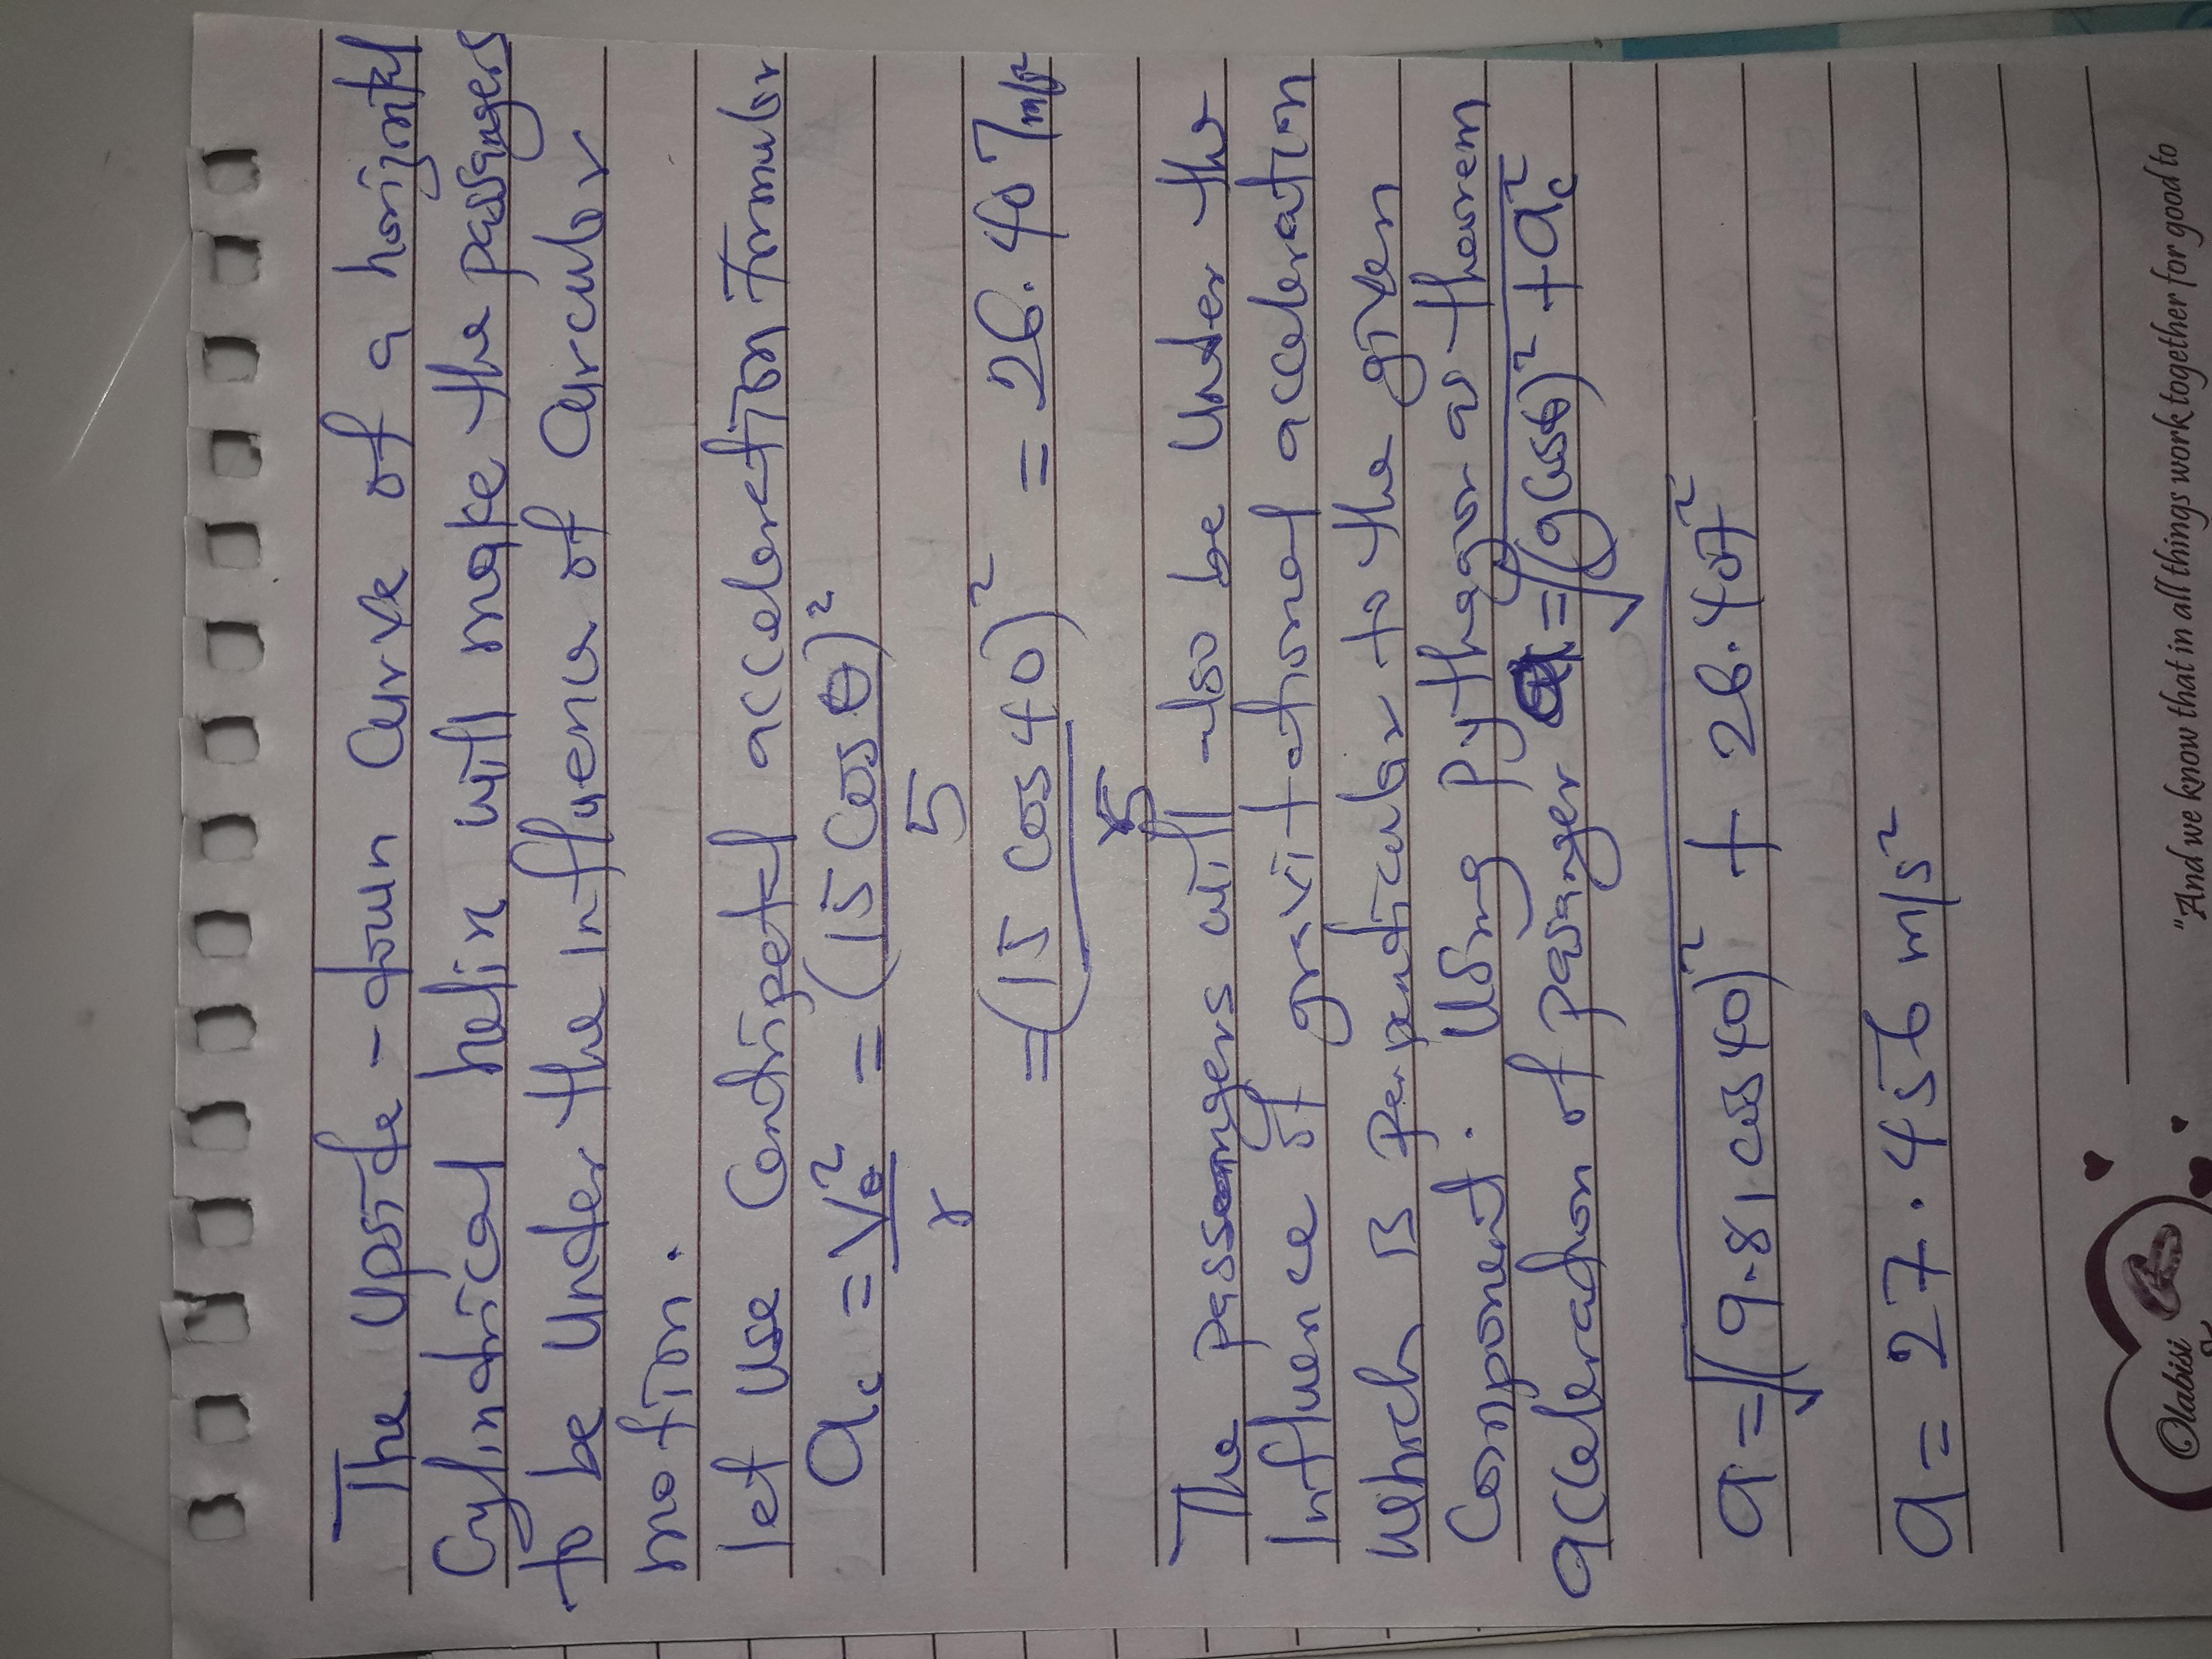 The Upside-down Curve of a horizontal
Cylindrical helix will make the passangers
to be under the influence of Circular
motion.
let use Centripetal acceleration formular
ac = Vθ²/r = (15 Cos θ)²/5
= (15 cos 40)²/5 = 26.407m/s²
The passengers will also be under the
influence of gravitational acceleration
which is perpendicular to the given
Component. Using Pythagoras theorem
acceleration of passanger a = √(g cosθ)² + ac²
a = √(9.81 cos 40)² + 26.407²
a = 27.456 m/s²
"And we know that in all things work together for good to
Olabisi